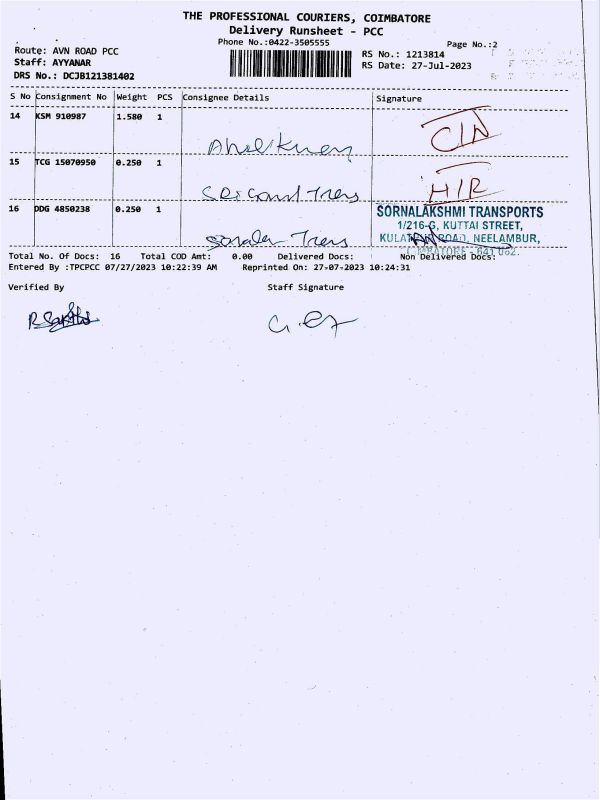 THE PROFESSIONAL COURIERS, COIMBATORE
Delivery Runsheet - PCC
Phone No.:0422-3505555
Page No.:2
Route: AVN ROAD PCC
RS No.: 1213814
Staff: AYYANAR
RS Date: 27-Jul-2023
DRS No.: DCJB121381402
S No Consignment No Weight PCS Consignee Details Signature
14 KSM 910987 1.580 1
CIN
15 TCG 15070950 0.250 1
Trans
H/R
16 DDG 4850238 0.250 1
Trans
SORNALAKSHMI TRANSPORTS
1/216-G, KUTTAI STREET,
ROAD, NEELAMBUR,
COIMBATORE - 641 062.
Total No. Of Docs: 16 Total COD Amt: 0.00 Delivered Docs: Non Delivered Docs:
Entered By :TPCPCC 07/27/2023 10:22:39 AM Reprinted On: 27-07-2023 10:24:31
Verified By Staff Signature